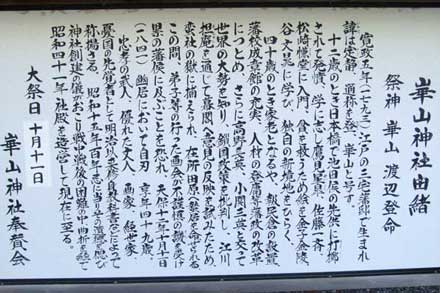 崋山神社由緒
祭神 崋山 渡辺登命
寛政五年(一七九三)江戸の三宅藩邸で生まれ
諱は定静、通称を登、崋山と号す。
十二歳のとき日本橋で池田侯の先供に打擲
されて発憤、学に志し鷹見星皐、佐藤一斎、
松崎慊堂に入門。貧を救うため絵を金子金陵、
谷文晁に学び、独自の新境地をひらく。
四十歳のとき家老となるや、報民倉の設置、
藩校成章館の充実、人材の登庸等藩政の改革
につとめ、さらに高野長英、小関三英と交って
世界の大勢を知り、鎖国政策を批判し、江川
坦庵を通じて幕閣へ意見の反映を試みたため、
蛮社の獄に捕えられ、在所田原へ蟄居を命ぜられる。
この間、弟子等の行った画会が不謹慎の譏を受け
県の藩侯に及ぶことを恐れ、天保十二年十月十一日
(一八四一)幽居において自刃 享年四十九歳、
忠孝の道人、優れた文人、画家、経世家
憂国の先覚者として明治以来修身教科書などによって
称揚さる。昭和
神社創建の儀がおこり戦中戦後の困難の中曲折を経て
昭和四十一年、社殿を造営して現在に至る。
大祭日 十月十一日
崋山神社奉賛会